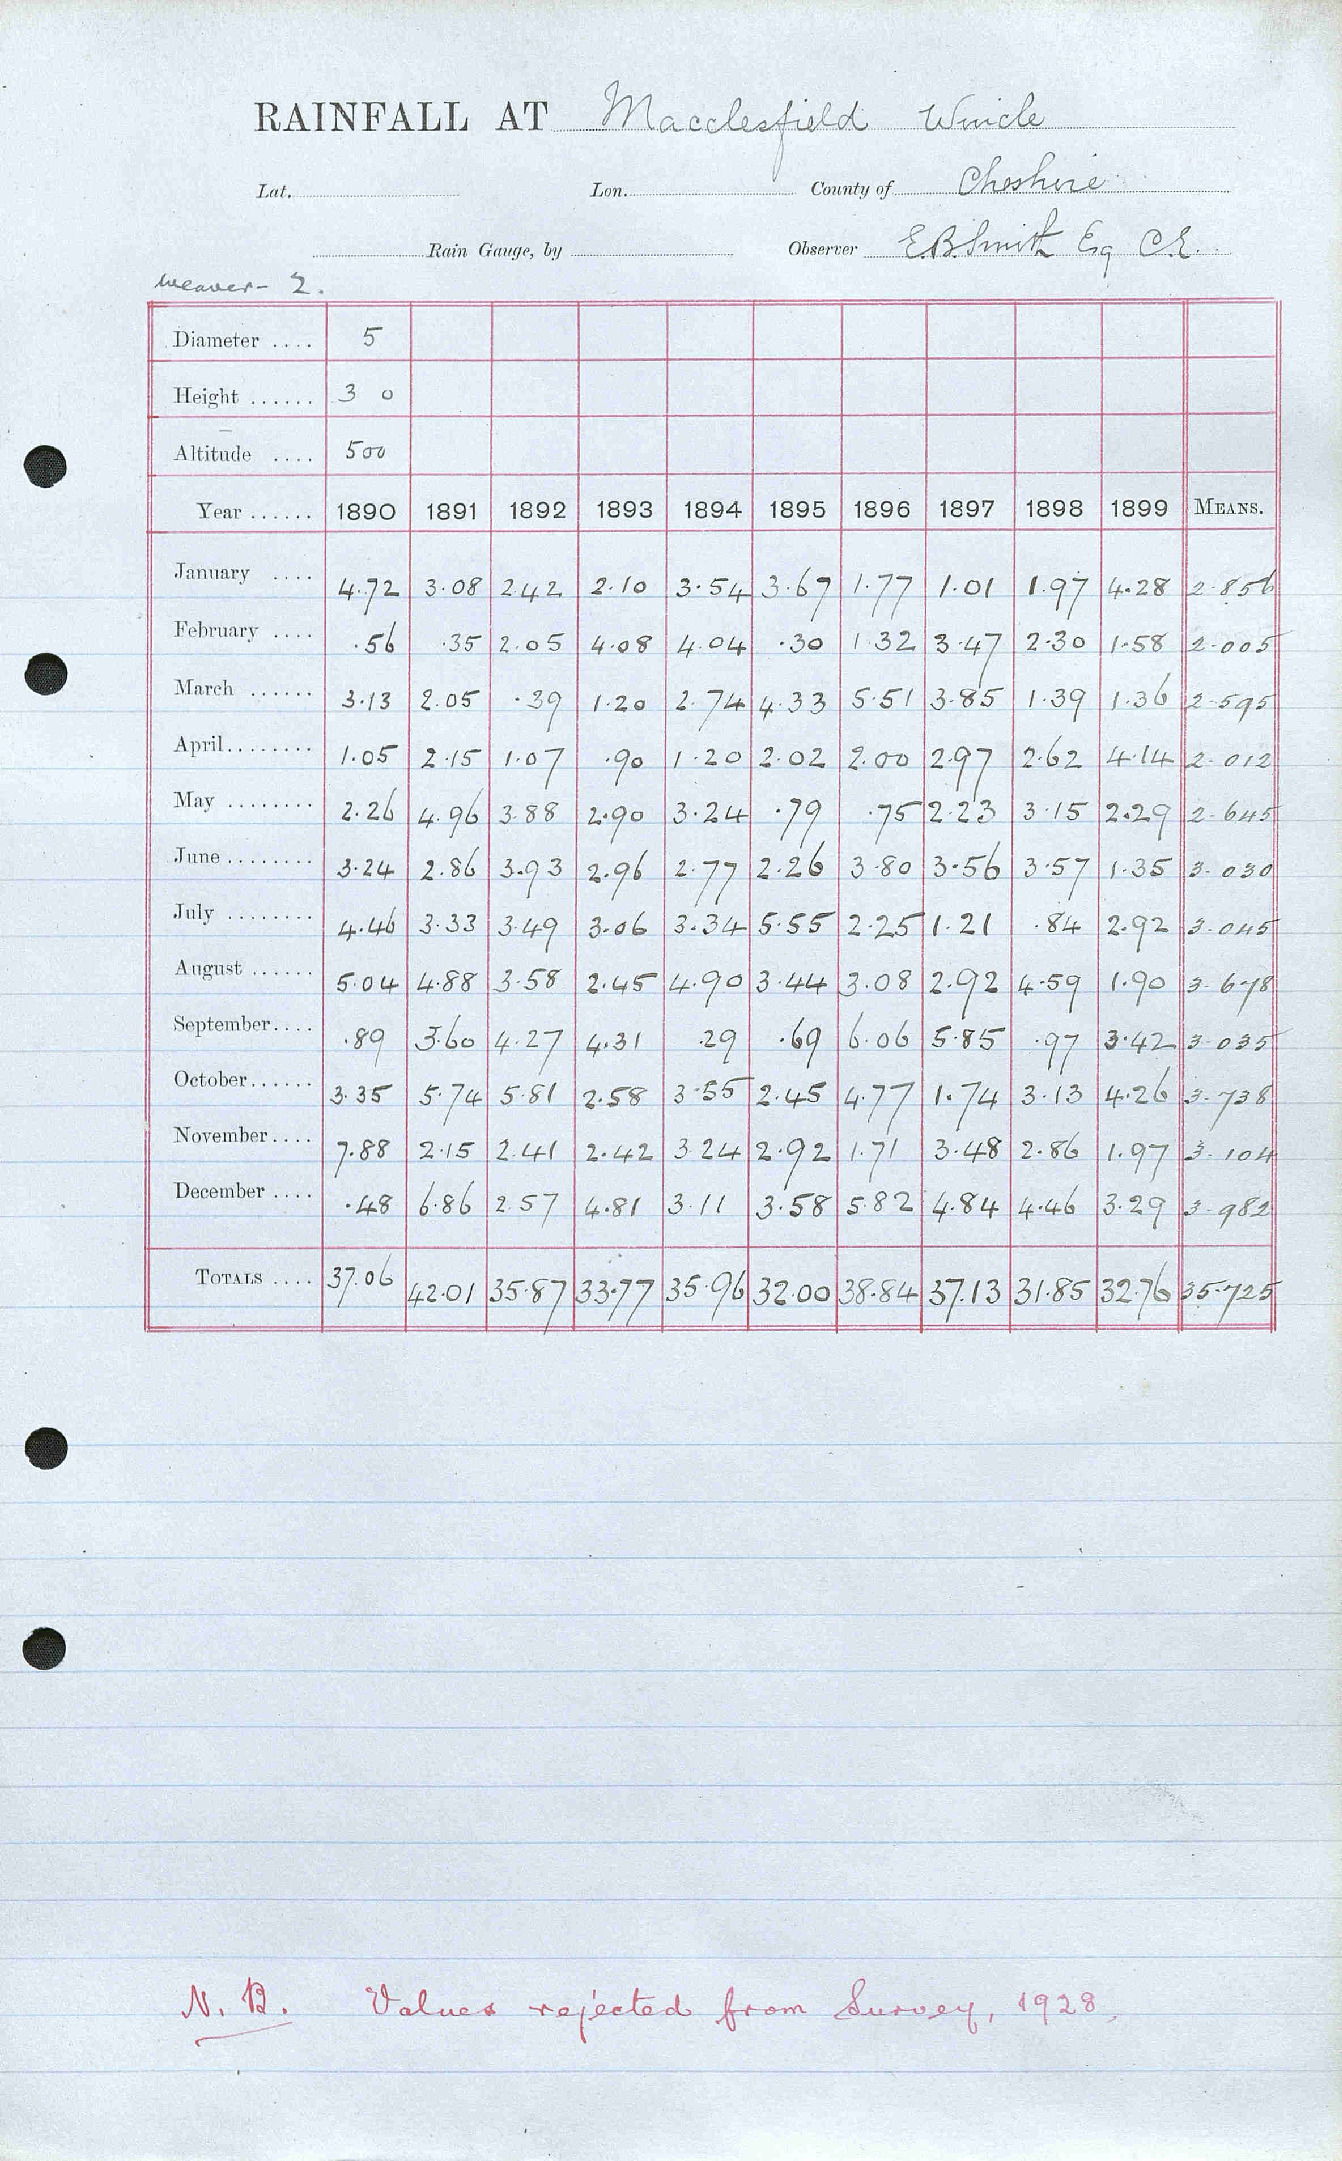 RAINFALL AT Macclesfield Wincle
Lat. Lon. County of Cheshire
Rain Gauge, by Observer E.B. Smith Esq C.E.
Weaver - 2.
Diameter .... 5
Height ...... 3 0
Altitude .... 500
Year ...... 1890 1891 1892 1893 1894 1895 1896 1897 1898 1899 MEANS.
January .... 4.72 3.08 2.42 2.10 3.54 3.67 1.77 1.01 1.97 4.28 2.856
February .... .56 .35 2.05 4.08 4.04 .30 1.32 3.47 2.30 1.58 2.005
March ...... 3.13 2.05 .39 1.20 2.74 4.33 5.51 3.85 1.39 1.36 2.595
April........ 1.05 2.15 1.07 .90 1.20 2.02 2.00 2.97 2.62 4.14 2.012
May ........ 2.26 4.96 3.88 2.90 3.24 .79 .75 2.23 3.15 2.29 2.645
June ........ 3.24 2.86 3.93 2.96 2.77 2.26 3.80 3.56 3.57 1.35 3.030
July ........ 4.46 3.33 3.49 3.06 3.34 5.55 2.25 1.21 .84 2.92 3.045
August ...... 5.04 4.88 3.58 2.45 4.90 3.44 3.08 2.92 4.59 1.90 3.678
September.... .89 3.60 4.27 4.31 .29 .69 6.06 5.85 .97 3.42 3.035
October...... 3.35 5.74 5.81 2.58 3.55 2.45 4.77 1.74 3.13 4.26 3.738
November.... 7.88 2.15 2.41 2.42 3.24 2.92 1.71 3.48 2.86 1.97 3.104
December .... .48 6.86 2.57 4.81 3.11 3.58 5.82 4.84 4.46 3.29 3.982
TOTALS .... 37.06 42.01 35.87 33.77 35.96 32.00 38.84 37.13 31.85 32.76 35.725
N. B. Values rejected from Survey, 1928.